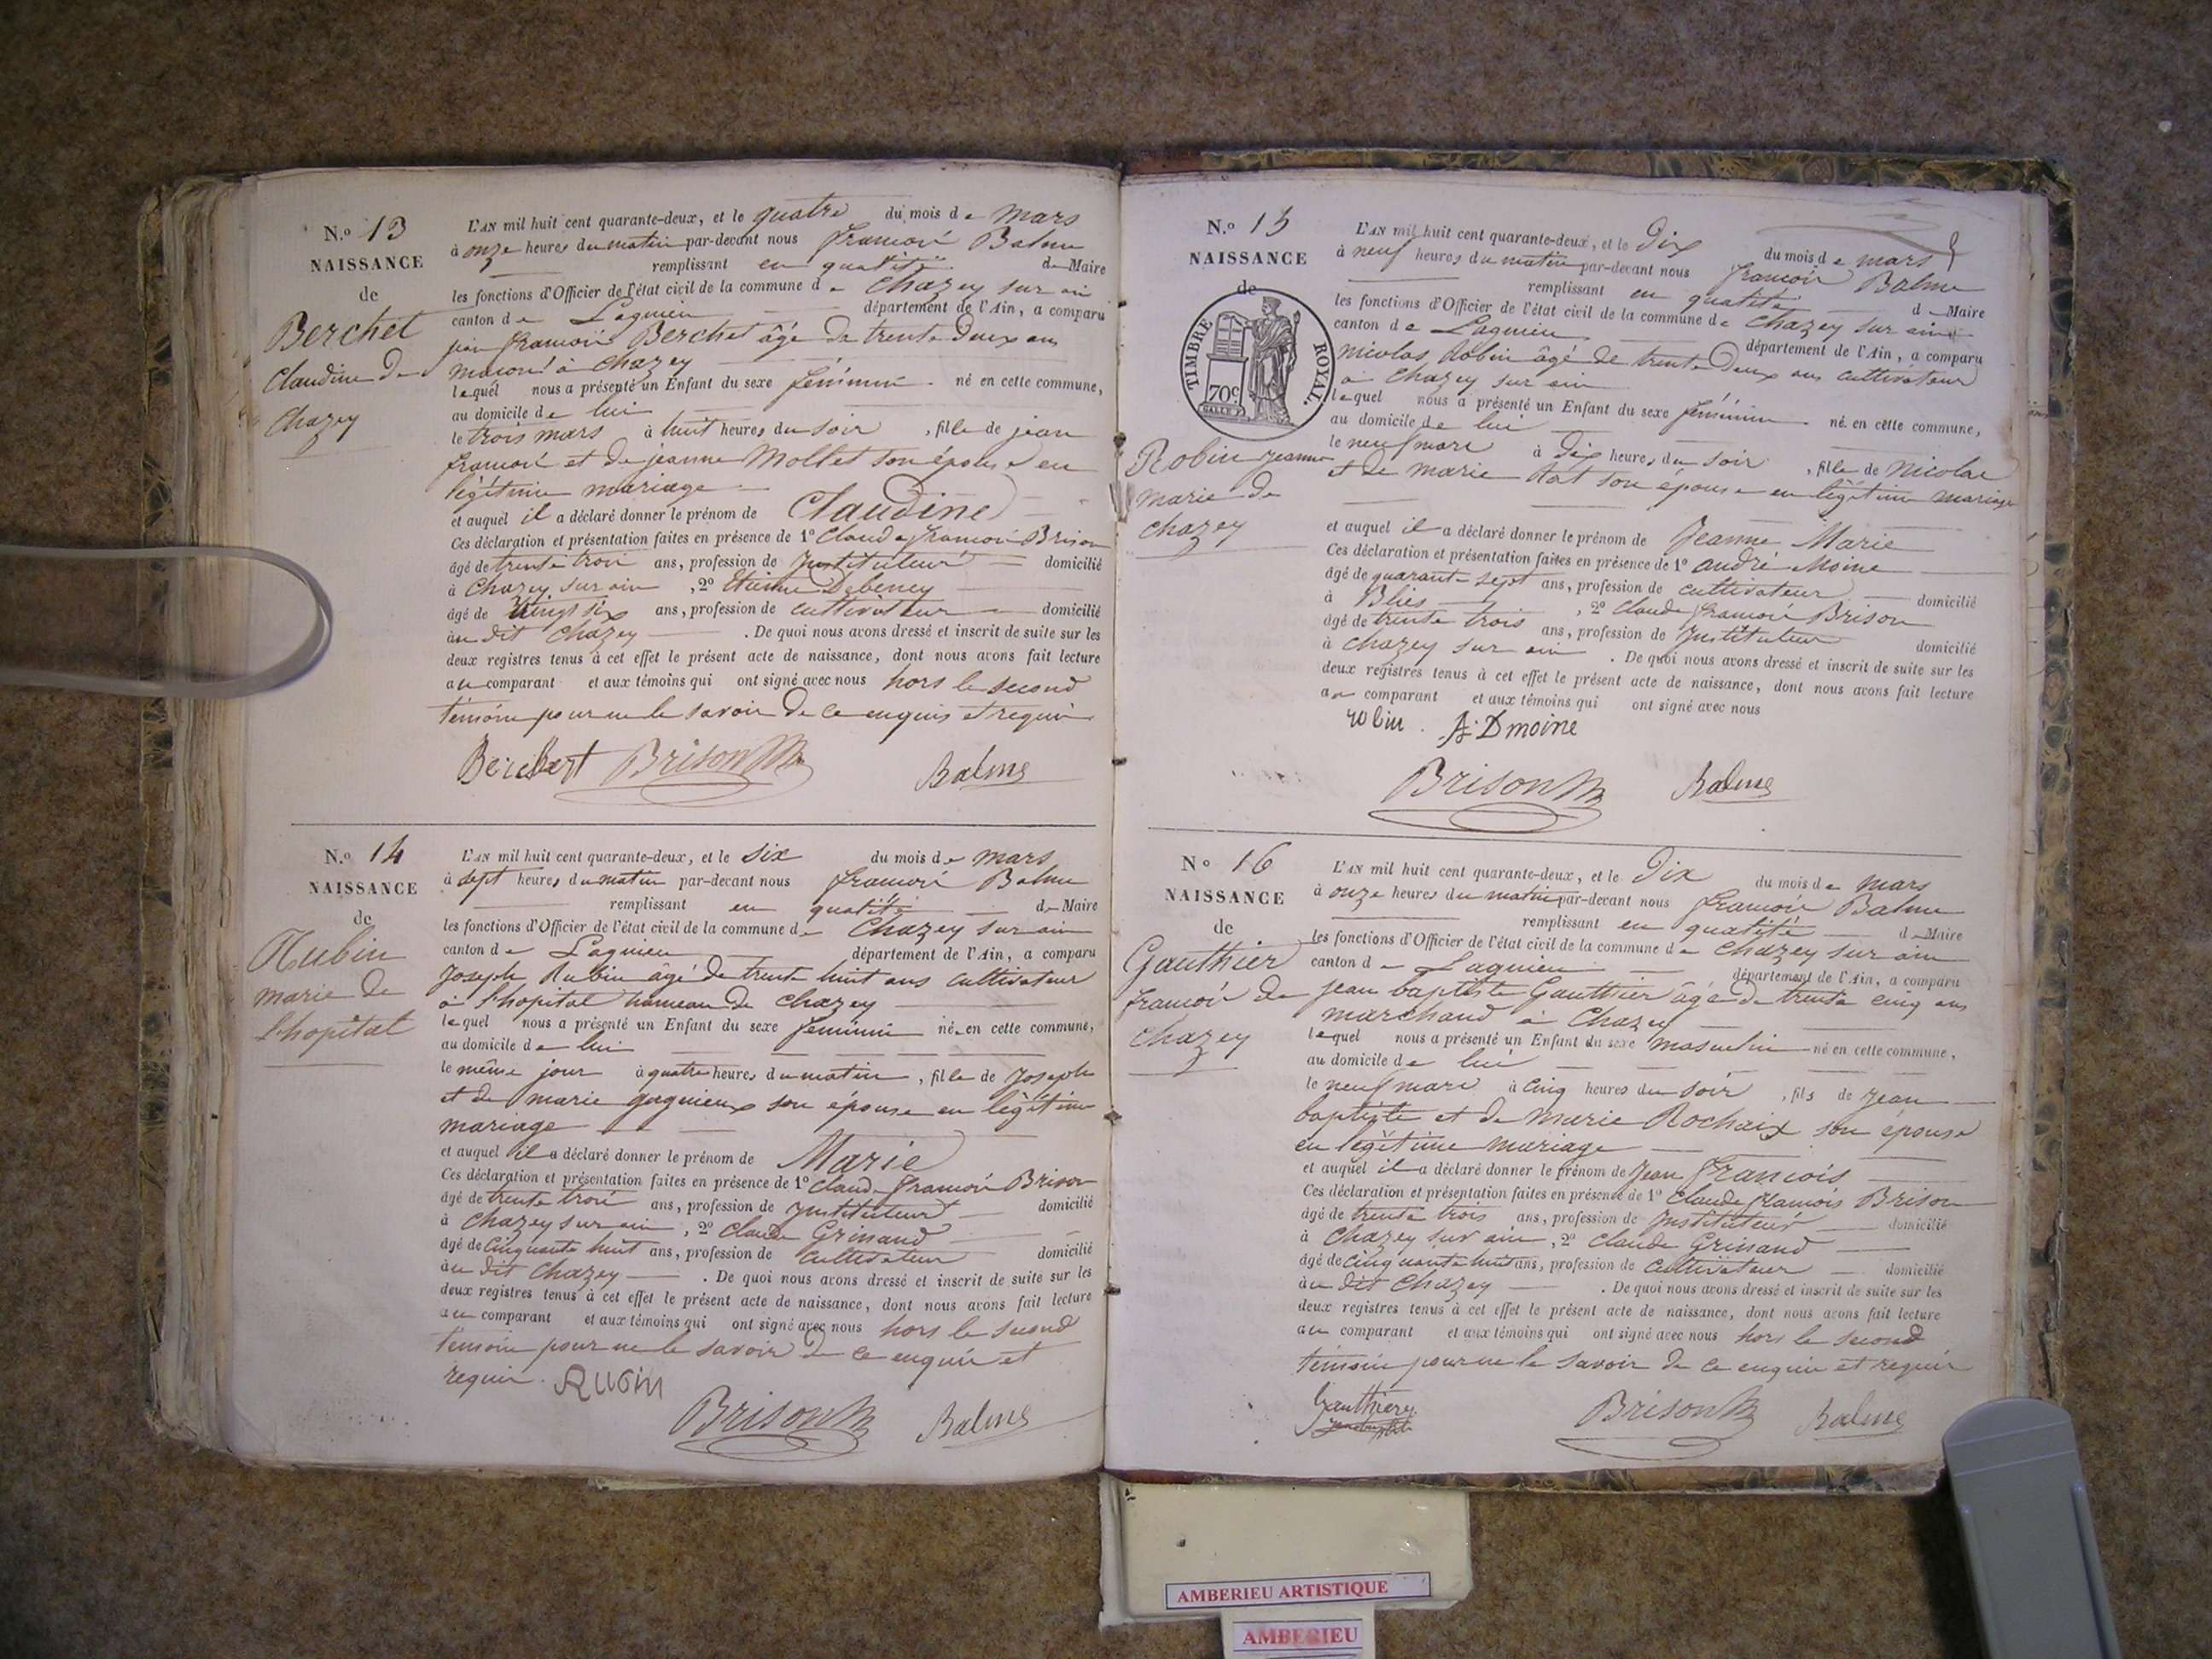 N.o 13
NAISSANCE
de
Berchet
Claudine de
Chazey
L'AN mil huit cent quarante-deux, et le quatre du mois de mars
à onze heures du matin par-devant nous francois Balme
remplissant en qualité de Maire
les fonctions d'Officier de l'état civil de la commune de Chazey sur ain
canton de Lagnieu département de l'Ain, a comparu
jean francois Berchet âgé de trente deux ans
macon à chazey
lequel nous a présenté un Enfant du sexe féminin né en cette commune,
au domicile de lui
le trois mars à huit heures du soir, fille de jean
francois et de jeanne Mollet son épouse en
légitime mariage
et auquel il a déclaré donner le prénom de Claudine
Ces déclaration et présentation faites en présence de 1o Claude francois Brison
âgé de trente trois ans, profession de Instituteur domicilié
à Chazey sur ain, 2o Etienne Debeney
âgé de vingt six ans, profession de cultivateur domicilié
au dit Chazey. De quoi nous avons dressé et inscrit de suite sur les
deux registres tenus à cet effet le présent acte de naissance, dont nous avons fait lecture
au comparant et aux témoins qui ont signé avec nous hors le second
témoin pour ne le savoir de ce enquis et requis
Brison Balme
N.o 14
NAISSANCE
de
Rubin
marie de
l'hopital
L'AN mil huit cent quarante-deux, et le six du mois de mars
à sept heures du matin par-devant nous francois Balme
remplissant en qualité de Maire
les fonctions d'Officier de l'état civil de la commune de Chazey sur ain
canton de Lagnieu département de l'Ain, a comparu
Joseph Rubin âgé de trente huit ans cultivateur
à l'hopital hameau de chazey
lequel nous a présenté un Enfant du sexe féminin né en cette commune,
au domicile de lui
le même jour à quatre heures du matin, fille de Joseph
et de marie gagnieux son épouse en légitime
mariage
et auquel il a déclaré donner le prénom de Marie
Ces déclaration et présentation faites en présence de 1o claude francois Brison
âgé de trente trois ans, profession de Instituteur domicilié
à Chazey sur ain, 2o Claude Grinand
âgé de cinquante huit ans, profession de cultivateur domicilié
au dit Chazey. De quoi nous avons dressé et inscrit de suite sur les
deux registres tenus à cet effet le présent acte de naissance, dont nous avons fait lecture
au comparant et aux témoins qui ont signé avec nous hors le second
témoin pour ne le savoir de ce enquis et
requis. Rubin
Brison Balme
N.o 15
NAISSANCE
de
TIMBRE ROYAL.
70c
Robin jeanne
marie de
chazey
L'AN mil huit cent quarante-deux, et le Dix du mois de mars
à neuf heures du matin par-devant nous francois Balme
remplissant en qualité de Maire
les fonctions d'Officier de l'état civil de la commune de Chazey sur ain
canton de Lagnieu département de l'Ain, a comparu
nicolas Robin âgé de trente deux ans cultivateur
à Chazey sur ain
lequel nous a présenté un Enfant du sexe féminin né en cette commune,
au domicile de lui
le neuf mars à Dix heures du soir, fille de nicolas
et de marie son épouse en légitime mariage
et auquel il a déclaré donner le prénom de Jeanne Marie
Ces déclaration et présentation faites en présence de 1o andré Moine
âgé de quarante sept ans, profession de cultivateur domicilié
à Blies, 2o Claude francois Brison
âgé de trente trois ans, profession de Instituteur domicilié
à Chazey sur ain. De quoi nous avons dressé et inscrit de suite sur les
deux registres tenus à cet effet le présent acte de naissance, dont nous avons fait lecture
au comparant et aux témoins qui ont signé avec nous
robin. A. D moine
Brison Balme
No 16
NAISSANCE
de
Gauthier
francois de
Chazey
L'AN mil huit cent quarante-deux, et le Dix du mois de mars
à onze heures du matin par-devant nous francois Balme
remplissant en qualité de Maire
les fonctions d'Officier de l'état civil de la commune de Chazey sur ain
canton de Lagnieu département de l'Ain, a comparu
jean baptiste Gauthier âgé de trente cinq ans
marchand à Chazey
lequel nous a présenté un Enfant du sexe masculin né en cette commune,
au domicile de lui
le neuf mars à cinq heures du soir, fils de jean
baptiste et de marie Rochaix son épouse
en légitime mariage
et auquel il a déclaré donner le prénom de Jean Francois
Ces déclaration et présentation faites en présence de 1o Claude francois Brison
âgé de trente trois ans, profession de Instituteur domicilié
à Chazey sur ain, 2o Claude Grinand
âgé de cinquante huit ans, profession de cultivateur domicilié
au dit Chazey. De quoi nous avons dressé et inscrit de suite sur les
deux registres tenus à cet effet le présent acte de naissance, dont nous avons fait lecture
au comparant et aux témoins qui ont signé avec nous hors le second
témoin pour ne le savoir de ce enquis et requis
Gauthier
Brison Balme
AMBERIEU ARTISTIQUE
AMBERIEU